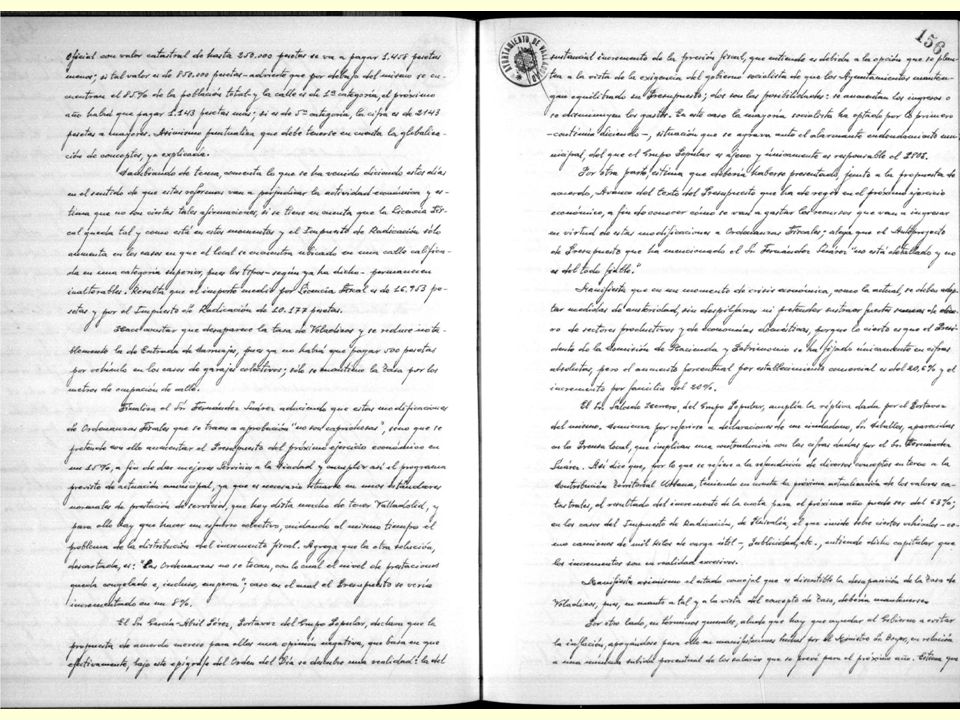 oficial con valor catastral de hasta 250.000 pesetas se va a pagar 1.458 pesetas
menos; si tal valor es de 850.000 pesetas -advierte que por debajo del mismo se en-
cuentran el 85% de la población total y la calle es de 1ª categoría, el próximo
año habrá que pagar 1.143 pesetas más; si es de 5ª categoría, la cifra es de 2143
pesetas a mayores. Asimismo puntualiza que debe tenerse en cuenta la globaliza-
ción de conceptos, ya explicada.
Cambiando de tema, comenta lo que se ha venido diciendo estos días
en el sentido de que estas reformas van a perjudicar la actividad económica y es-
tima que no son ciertas tales afirmaciones, si se tiene en cuenta que la Licencia Fis-
cal queda tal y como está en estos momentos y el Impuesto de Radicación sólo
aumenta en los casos en que el local se encuentra ubicado en una calle califica-
da en una categoría superior, pues los tipos -según ya ha dicho- permanecen
inalterables. Resulta que el importe medio por Licencia Fiscal es de 26.753 pe-
setas y por el Impuesto de Radicación de 20.177 pesetas.
Hace constar que desaparece la tasa de Voladizos y se reduce nota-
blemente la de Entrada de Carruajes, pues ya no habrá que pagar 500 pesetas
por vehículo en los casos de garajes colectivos; sólo se mantiene la Tasa por los
metros de ocupación de calle.
Finaliza el Sr. Fernández Suárez aduciendo que estas modificaciones
de Ordenanzas Fiscales que se traen a aprobación "no son caprichosas", sino que se
pretende con ello aumentar el Presupuesto del próximo ejercicio económico en
un 15%, a fin de dar mejores Servicios a la Ciudad y cumplir así el programa
previsto de actuación municipal, ya que es necesario situarse en unos estándares
normales de prestación de servicios, que hoy dista mucho de tener Valladolid, y
para ello hay que hacer un esfuerzo colectivo, cuidando al mismo tiempo el
problema de la distribución del incremento fiscal. Agrega que la otra solución,
descartada, es: "Las Ordenanzas no se tocan, con lo cual el nivel de prestaciones
queda congelado e, incluso, empeora", caso en el cual el Presupuesto se vería
incrementado en un 8%.
El Sr. García-Abril Pérez, Portavoz del Grupo Popular, declara que la
propuesta de acuerdo merece para ellos una opinión negativa, que basa en que
efectivamente, bajo este epígrafe del Orden del Día se descubre una realidad: la del
AYUNTAMIENTO DE VALLADOLID
156
sustancial incremento de la presión fiscal, que entiende es debida a la opción que se plan-
tea a la vista de la exigencia del gobierno socialista de que los Ayuntamientos manten-
gan equilibrado su Presupuesto; dos son las posibilidades: se aumentan los ingresos o
se disminuyen los gastos. En este caso la mayoría socialista ha optado por lo primero
-continúa diciendo-, situación que se agrava ante el alarmante endeudamiento mu-
nicipal, del que el Grupo Popular es ajeno y únicamente es responsable el PSOE.
Por otra parte, estima que debería haberse presentado, junto a la propuesta de
acuerdo, Avance del texto del Presupuesto que ha de regir en el próximo ejercicio
económico, a fin de conocer cómo se van a gastar los recursos que van a ingresar
en virtud de estas modificaciones a Ordenanzas Fiscales; alega que el Anteproyecto
de Presupuesto que ha mencionado el Sr. Fernández Suárez "no está detallado y no
es del todo fiable."
Manifiesta que en un momento de crisis económica, como la actual, se deben adop-
tar medidas de austeridad, sin despilfarros ni pretender sustraer fuertes sumas de dine-
ro de sectores productivos y de economías domésticas, porque lo cierto es que el Presi-
dente de la Comisión de Hacienda y Patrimonio se ha fijado únicamente en cifras
absolutas, pero el aumento porcentual por establecimiento comercial es del 20,6% y el
incremento por familia del 20%.
El Sr. Salcedo, del Grupo Popular, amplía la réplica dada por el Portavoz
del mismo. Comienza por referirse a declaraciones de un ciudadano, Sr. Ceballos, aparecidas
en la Prensa local, que implican una contradicción con las cifras dadas por el Sr. Fernández
Suárez. Así dice que, por lo que se refiere a la refundición de diversos conceptos en torno a la
Contribución Territorial Urbana, teniendo en cuenta la próxima actualización de los valores ca-
tastrales, el resultado del incremento de la cuota para el próximo año puede ser del 68%;
en los casos del Impuesto de Radiación, de Plusvalía, el que incide sobre ciertos vehículos -co-
mo camiones de mil kilos de carga útil-, Publicidad, etc., entiende dicho capitular que
los incrementos son en realidad excesivos.
Manifiesta asimismo el citado concejal que es discutible la desaparición de la Tasa de
Voladizos, pues, en cuanto a tal y a la vista del concepto de Tasa, debería mantenerse.
Por otro lado, en términos generales, alude que hay que ayudar al Gobierno a evitar
la inflación, apoyándose para ello en manifestaciones por el Ministro de Boyer, en relación
a una mínima subida porcentual de los salarios que se prevé para el próximo año. Estima que